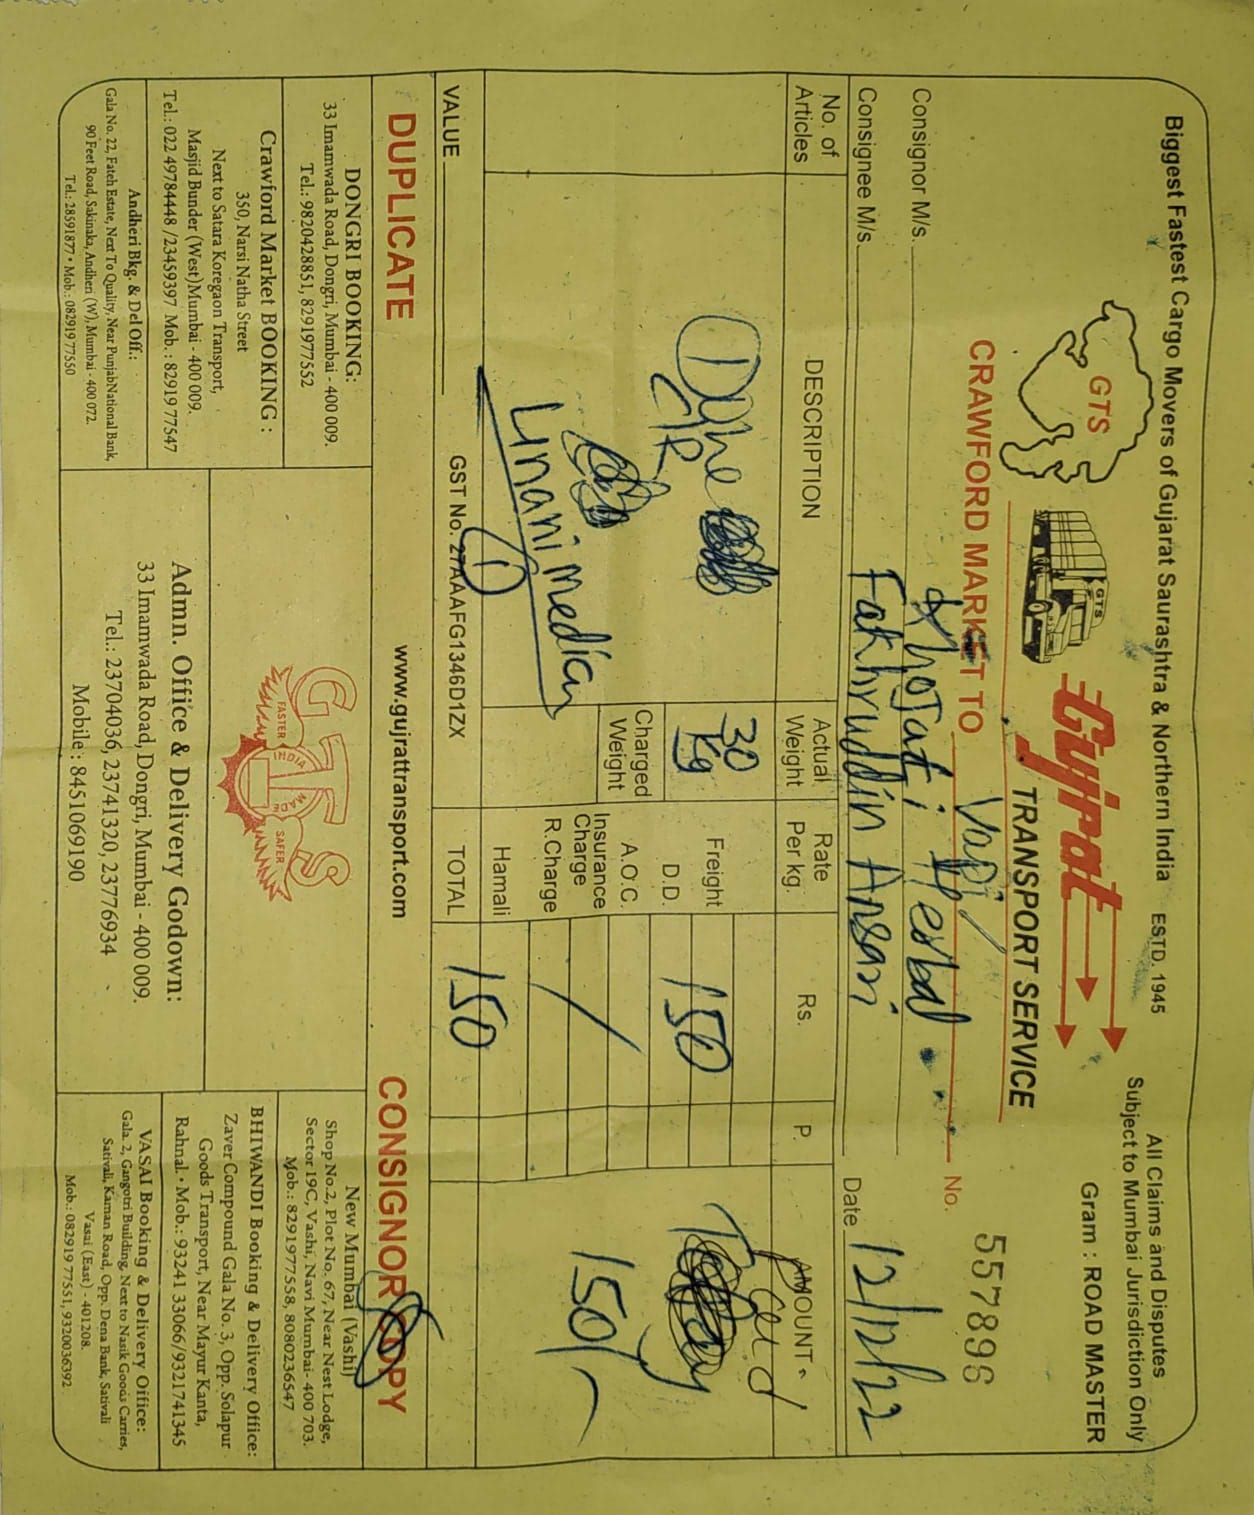 Biggest Fastest Cargo Movers of Gujarat Saurashtra & Northern India ESTD. 1945
All Claims and Disputes
Subject to Mumbai Jurisdiction Only
GTS
GTS
Gujrat
TRANSPORT SERVICE
Gram : ROAD MASTER
CRAWFORD MARKET TO Vapi
No. 557896
Consignor M/s. Khojati Herbal
Consignee M/s. Fakhruddin Ansari
Date 12/12/22
No. of Articles
DESCRIPTION
Actual Weight
Rate Per kg.
Rs.
P.
AMOUNT
One
30 Kg
Freight
150
Paid
D.D.
Charged Weight
A.O.C.
Insurance Charge
150/-
R.Charge
Unani medician
Hamali
1
VALUE
GST No. 27AAAFG1346D1ZX
TOTAL
150
DUPLICATE
www.gujrattransport.com
CONSIGNOR COPY
DONGRI BOOKING:
33 Imamwada Road, Dongri, Mumbai - 400 009.
Tel.: 9820428851, 8291977552
Crawford Market BOOKING :
350, Narsi Natha Street
Next to Satara Koregaon Transport,
Masjid Bunder (West)Mumbai - 400 009.
Tel.: 022 49784448 /23459397 Mob. : 82919 77547
Andheri Bkg. & Del Off.:
Gala No. 22, Fateh Estate, Next To Quality, Near PunjabNational Bank,
90 Feet Road, Sakinaka, Andheri (W), Mumbai - 400 072.
Tel.: 28591877 • Mob.: 082919 77550
GTS
FASTER
INDIA
MADE
SAFER
Admn. Office & Delivery Godown:
33 Imamwada Road, Dongri, Mumbai - 400 009.
Tel.: 23704036, 23741320, 23776934
Mobile : 8451069190
New Mumbai (Vashi)
Shop No.2, Plot No. 67, Near Nest Lodge,
Sector 19C, Vashi, Navi Mumbai- 400 703.
Mob.: 8291977558, 8080236547
BHIWANDI Booking & Delivery Office:
Zaver Compound Gala No. 3, Opp. Solapur
Goods Transport, Near Mayur Kanta,
Rahnal. • Mob.: 93241 33066/9321741345
VASAI Booking & Delivery Office:
Gala. 2, Gangotri Building, Next to Nasik Goods Carries,
Sativali, Kaman Road, Opp. Dena Bank, Sativali
Vasai (East) - 401208.
Mob.: 082919 77551, 9320036392